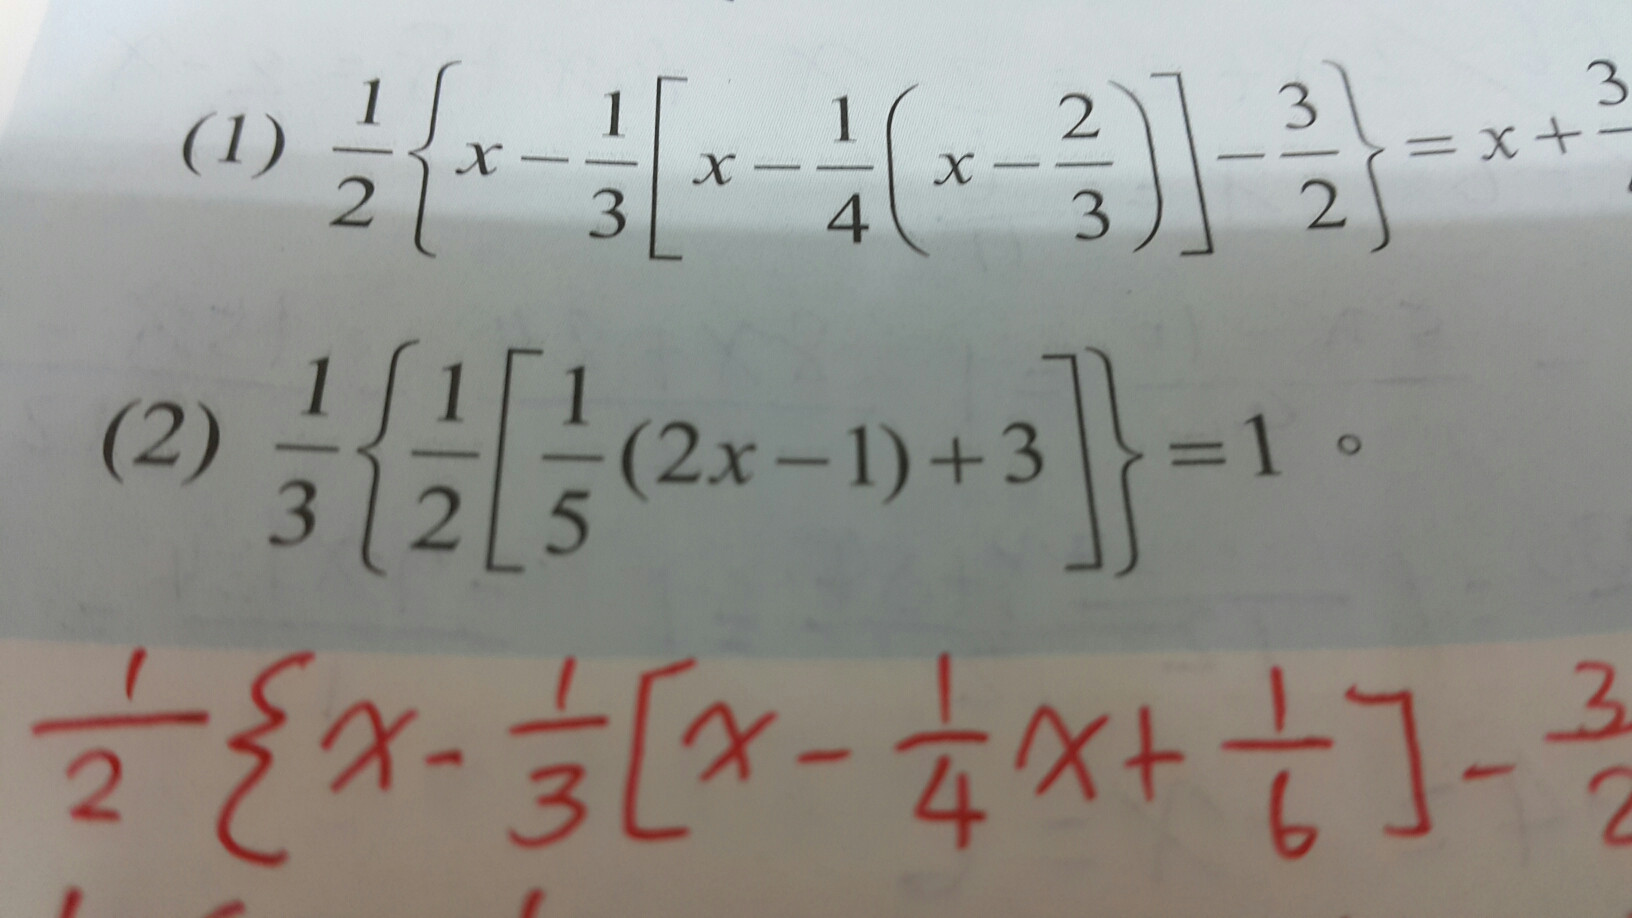 (1) 1/2{x-1/3[x-1/4(x-2/3)]-3/2}=x+3
(2) 1/3{1/2[1/5(2x-1)+3]}=1。
1/2{x-1/3[x-1/4x+1/6]-3/2